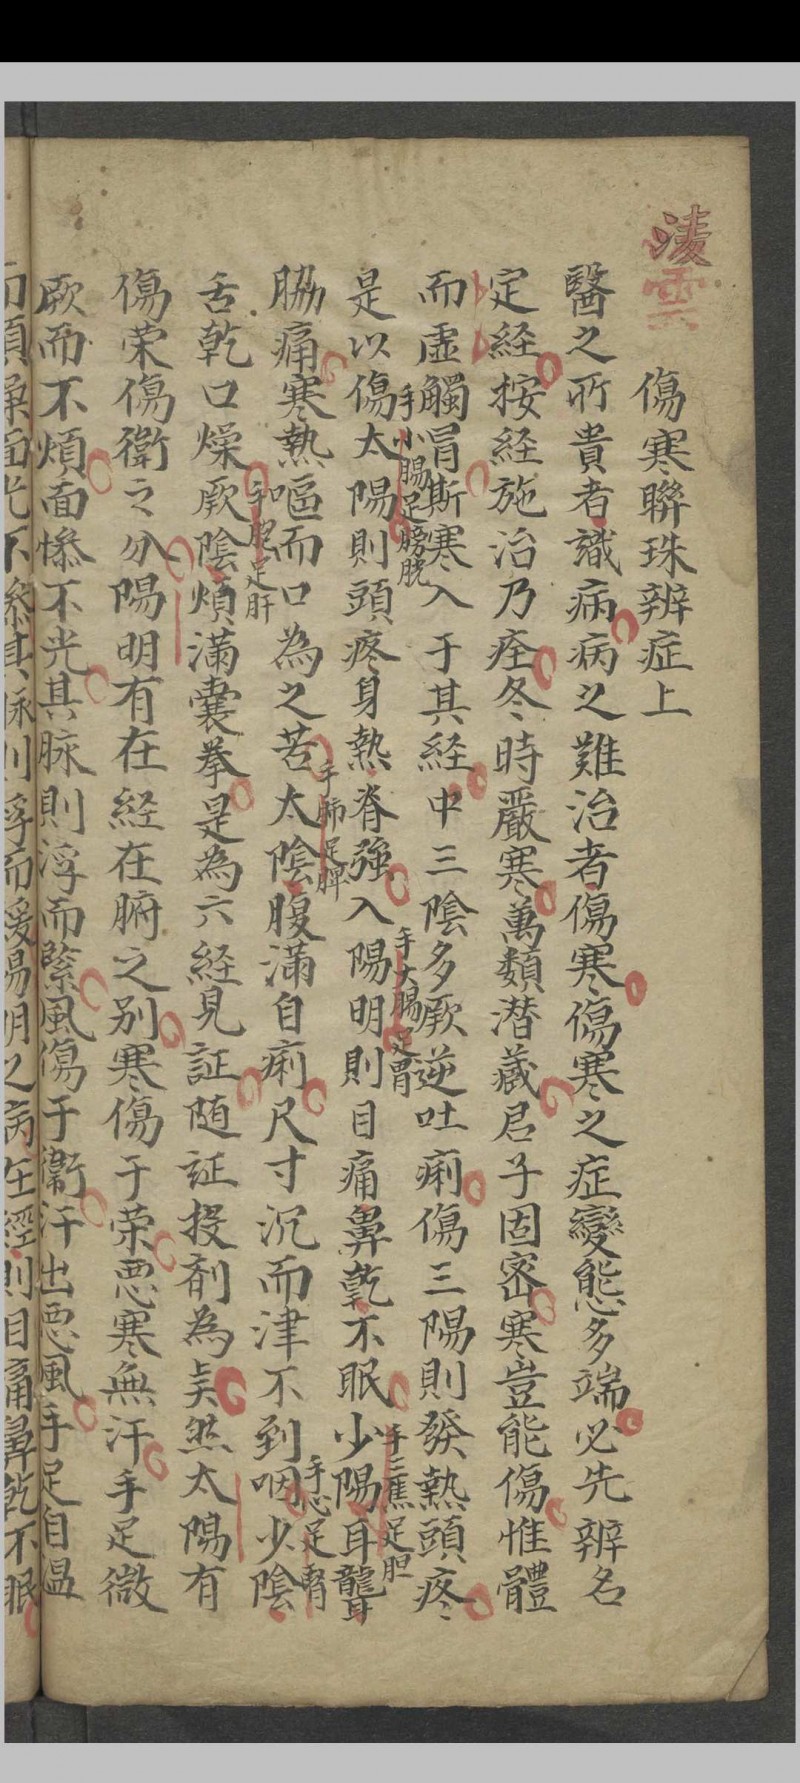 凌雲
傷寒聯珠辨症上
醫之所貴者識病病之難治者傷寒傷寒之症變態多端必先辨名
定経按経施治乃痊冬時嚴寒萬類潜藏君子固密寒豈能傷惟體
而虛觸冒斯寒入于其経中三陰多厥逆吐痢傷三陽則發熱頭疼
是以傷太陽則頭疼身熱脊強入陽明則目痛鼻乾不眠少陽耳聾
手小腸足膀胱
手大腸足胃
手三焦足胆
脇痛寒熱嘔而口為之苦太陰腹滿自痢尺寸沉而津不到咽少陰
手肺足脾
手心足腎
舌乾口燥厥陰煩滿囊拳是為六経見証随証投剤為矣然太陽有
足肝
傷荣傷衛之分陽明有在経在腑之别寒傷于荣恶寒無汗手足微
厥而不煩面惨不光其脉則浮而緊風傷于衛汗出恶風手足自温
而煩燥面光不惨其脉則浮而緩陽明之病在經則目痛鼻乾不眠